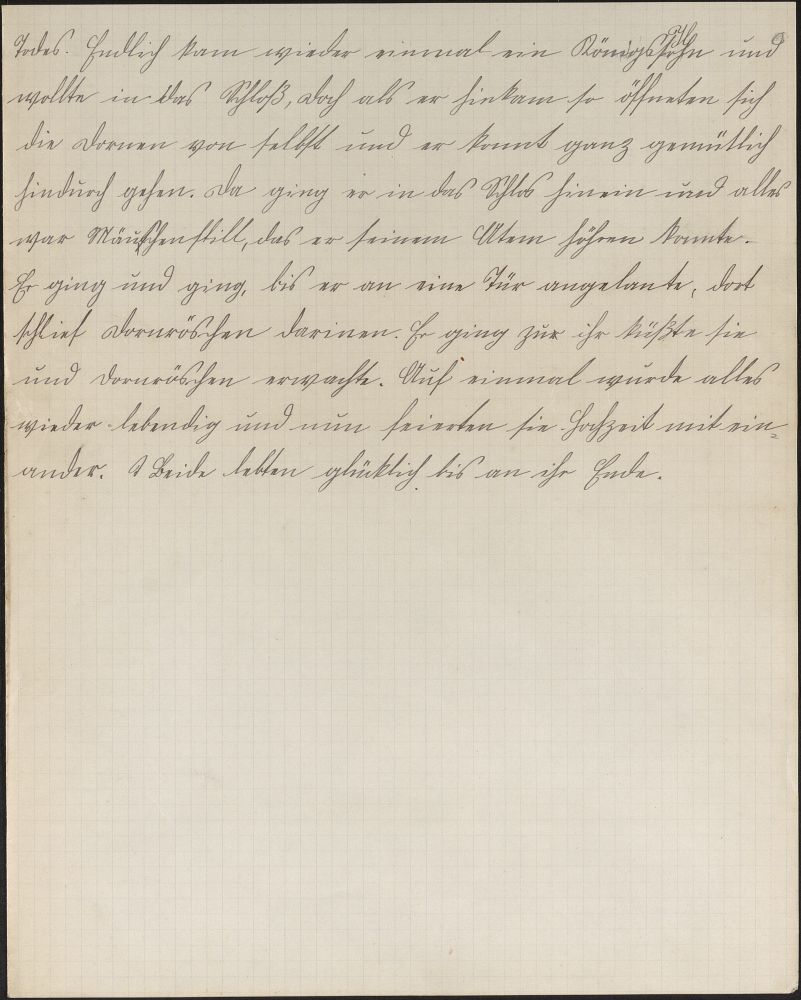 Todes. Endlich kam wieder einmal ein Königssohn und
wollte in das Schloß, doch als er hinkam so öffneten sich
die Dornen von selbst und er konnt ganz gemütlich
hindurch gehen. Da ging er in das Schlos hinein und alles
war Mäuschenstill, das er seinem Atem höhren konnte.
Er ging und ging, bis er an eine Tür angelante, dort
schlief Dornröschen darinen. Er ging zur ihr küßte sie
und Dornröschen erwachte. Auf einmal wurde alles
wieder lebendig und nun feierten sie Hochzeit mit ein=
ander. Beide lebten glücklich bis an ihr Ende.